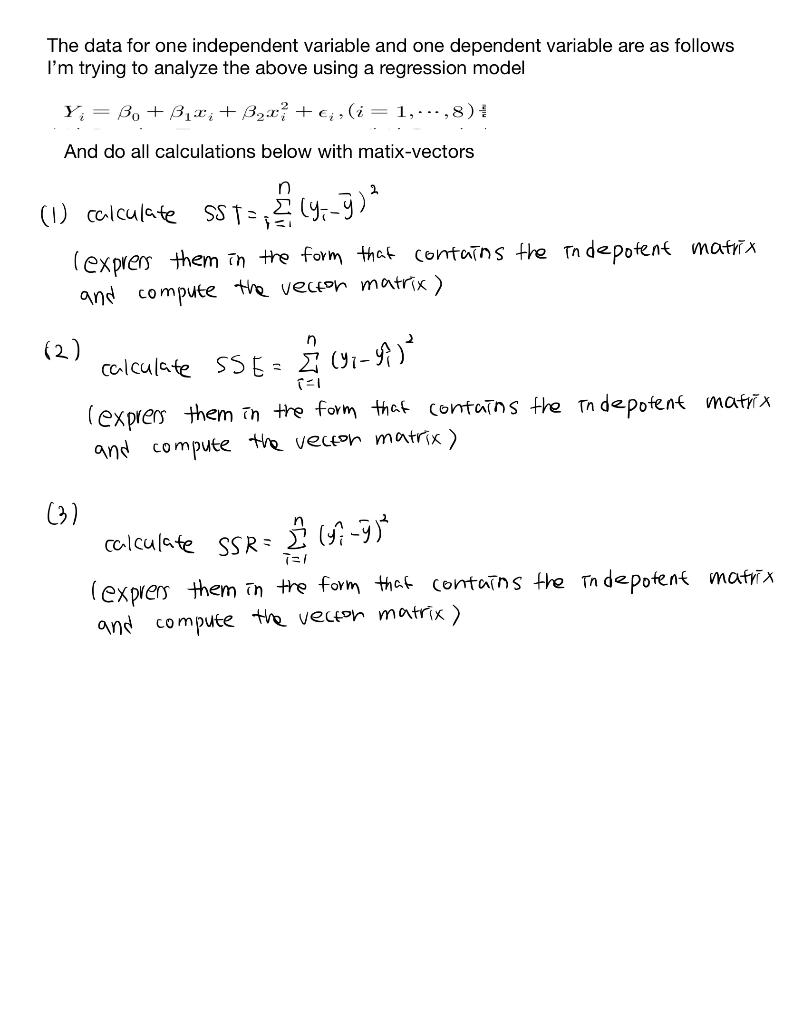 The data for one independent variable and one dependent variable are as follows
I'm trying to analyze the above using a regression model
Y_i = β_0 + β_1x_i + β_2x_i^2 + ϵ_i, (i = 1, ⋯, 8)
And do all calculations below with matix-vectors
(1) calculate SST = Σ_{i=1}^{n} (y_i - ȳ)^2
(express them in the form that contains the indepotent matrix
and compute the vector matrix)
(2) calculate SSE = Σ_{i=1}^{n} (y_i - ŷ_i)^2
(express them in the form that contains the indepotent matrix
and compute the vector matrix)
(3)
calculate SSR = Σ_{i=1}^{n} (ŷ_i - ȳ)^2
(express them in the form that contains the indepotent matrix
and compute the vector matrix)